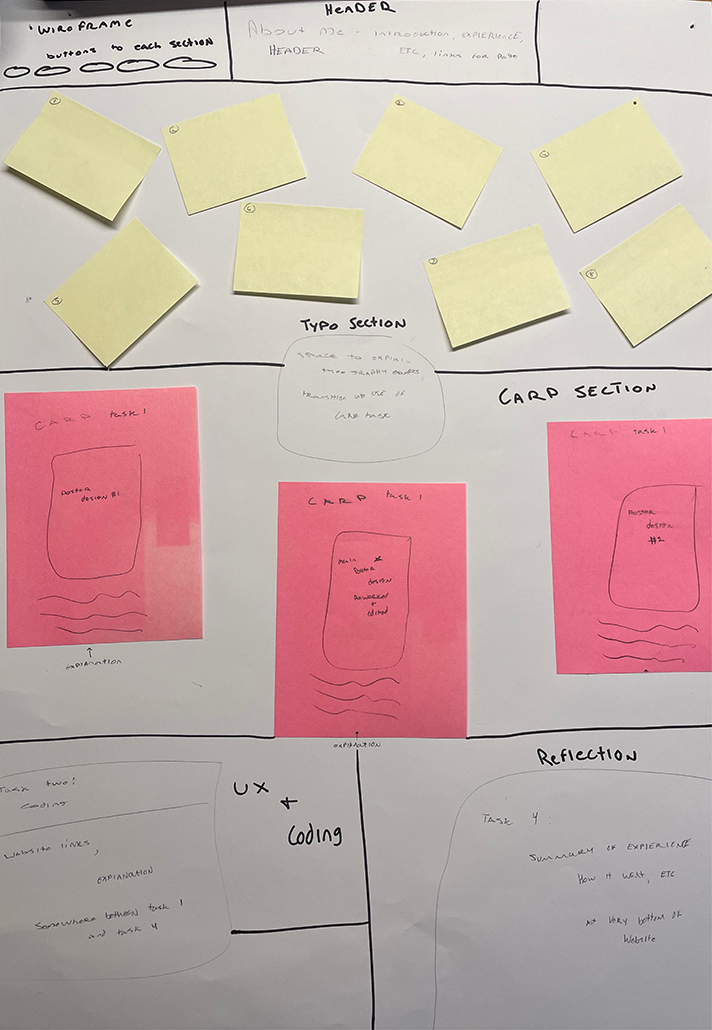 WIREFRAME
buttons to each section
HEADER
About Me - introduction, expierience,
HEADER ETC, links for page
1
2
3
4
5
6
7
8
Typo Section
space to explain
typography examples
transition use of
CARP task
CARP SECTION
CARP task 1
Poster
design #1
explanation
CARP task 1
main
Poster
design
Reworked
+
edited
explanation
CARP task 1
Poster
design
#2
UX
+
Coding
Task two:
Coding
Website links,
EXPlanation
Somewhere between task 1
and task 4
Reflection
Task 4:
Summary of expierience
How it went, etc
At very bottom of
Website